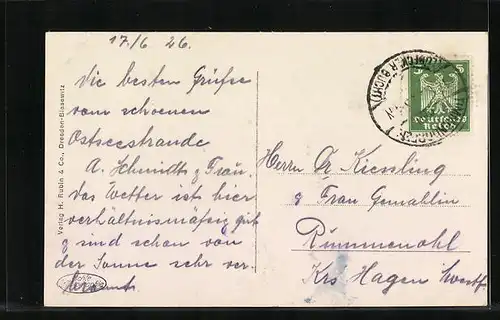 17/6 26.
die besten Grüße
vom schoenen
Ostseestrande
A. Schmidts & Frau.
das Wetter ist hier
verhältnismäßig gut
& sind schon von
der Sonne sehr ver-
brannt
Verlag H. Rubin & Co., Dresden-Blasewitz
5 5
Deutsches
Reich
(LÜBECKER BUCHT)
Herrn Kiessling
& Frau Gemahlin
Rummenohl
Krs Hagen Westf